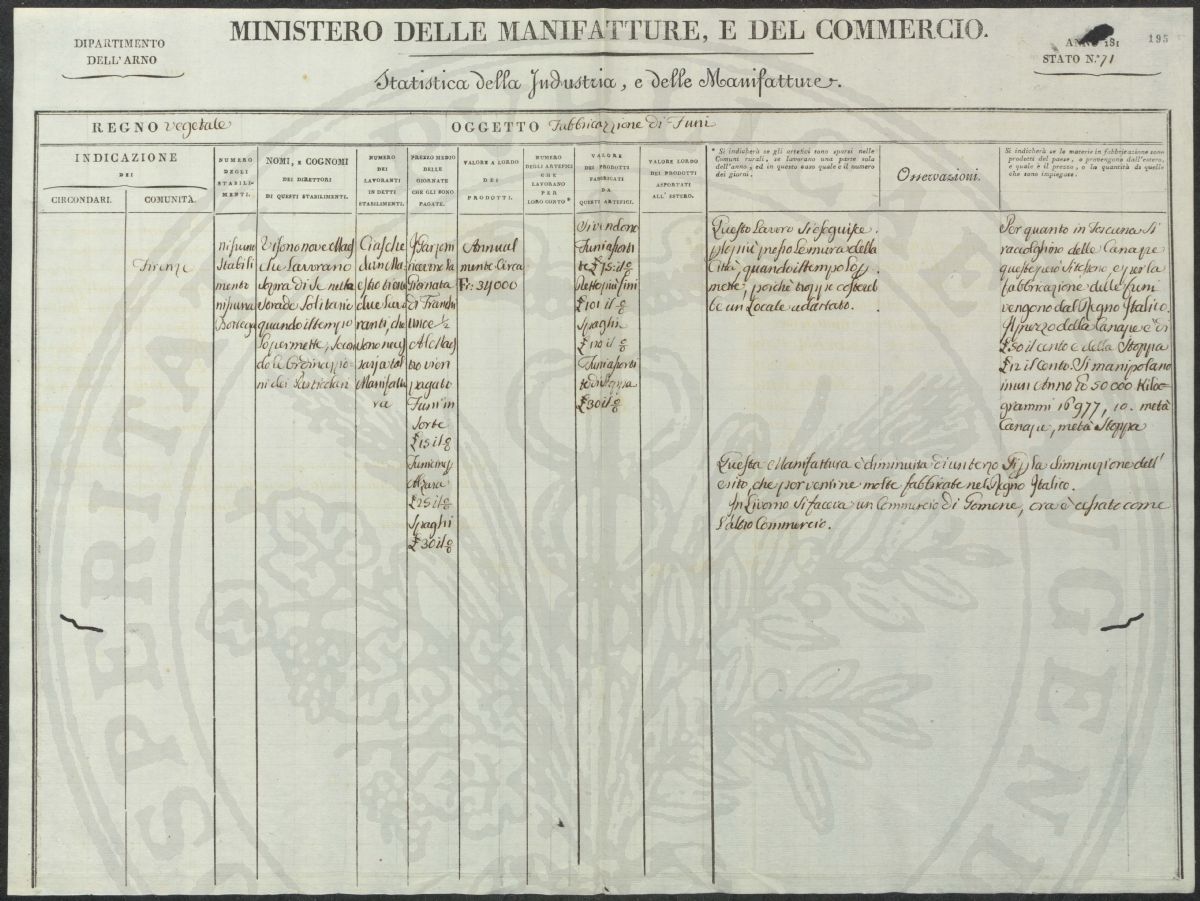 MINISTERO DELLE MANIFATTURE, E DEL COMMERCIO.
DIPARTIMENTO
DELL'ARNO
195
ANNO 181
STATO N.° 71
Statistica della Industria, e delle Manifatture.
REGNO Vegetale
OGGETTO Fabbricazzione di Funi
INDICAZIONE
DEI
CIRCONDARI.
COMUNITÀ.
NUMERO
DEGLI
STABILI-
MENTI.
NOMI, E COGNOMI
DEI DIRETTORI
DI QUESTI STABILIMENTI.
NUMERO
DEI
LAVORANTI
IN DETTI
STABILIMENTI.
PREZZO MEDIO
DELLE
GIORNATE
CHE GLI SONO
PAGATE.
VALORE A LORDO
DEI
PRODOTTI.
NUMERO
DEGLI ARTEFICI
CHE
LAVORANO
PER
LORO CONTO *
VALORE
DEI PRODOTTI
FABBRICATI
DA
QUESTI ARTEFICI.
VALORE LORDO
DEI PRODOTTI
ASPORTATI
ALL'ESTERO.
* Si indicherà se gli artefici sono sparsi nelle
Comuni rurali, se lavorano una parte sola
dell'anno, ed in questo caso quale è il numero
dei giorni.
Osservazioni.
Si indicherà se le materie in fabbricazione sono
prodotti del paese, o provengono dall'estero,
e quale è il prezzo, o la quantità di quelle
che sono impiegate.
Firenze
nissuno
Stabili
mento
nissuna
Bottega
Vi sono nove Maes
che Lavorano
sopra di se nelle
Strade Solitarie
quando il tempo
lo permette, secon
do le Ordinazio
ni dei Particolari
Ciasche
dun Ma
estro tiene
due Lavo
ranti, che
sono neces
sarj a tal
Manifattu
ra
I Garzoni
hanno la
Giornata
di Franchi
unce ½
Al Maes
tro vien
pagato
Funi in
Sorte
£15 il %
£25 il %
Spaghi
£30 il %
Annual
mente Circa
Fr: 34000
Si vendono
Funi a porti
te £75 il %
dette più fini
£101 il %
Spaghi
£110 il %
Funi a porti
te di Stoppa
£30 il %
Questo Lavoro si eseguisce
per lo più presso le mura della
Città, quando il tempo lo per
mette, poichè troppo costereb
be un Locale adattato.
Per quanto in Toscana Si
raccolghino delle Canape
queste però si tessono, e per la
fabbricazione delle funi
vengono dal Regno Italico.
Il prezzo della Canape è di
£50 il cento e della Stoppa
£12 il Cento. Si manipolano
in un Anno lb 50000 Kilo-
grammi 16977, 10. metà
Canape, metà Stoppa
Questa Manifattura è diminuita di un terzo per la diminuzione dell'
esito, che per ventine molte fabbricate nel Regno Italico.
In Livorno si faceva un Commercio di Gomene, ora è cessato come
l'altro Commercio.